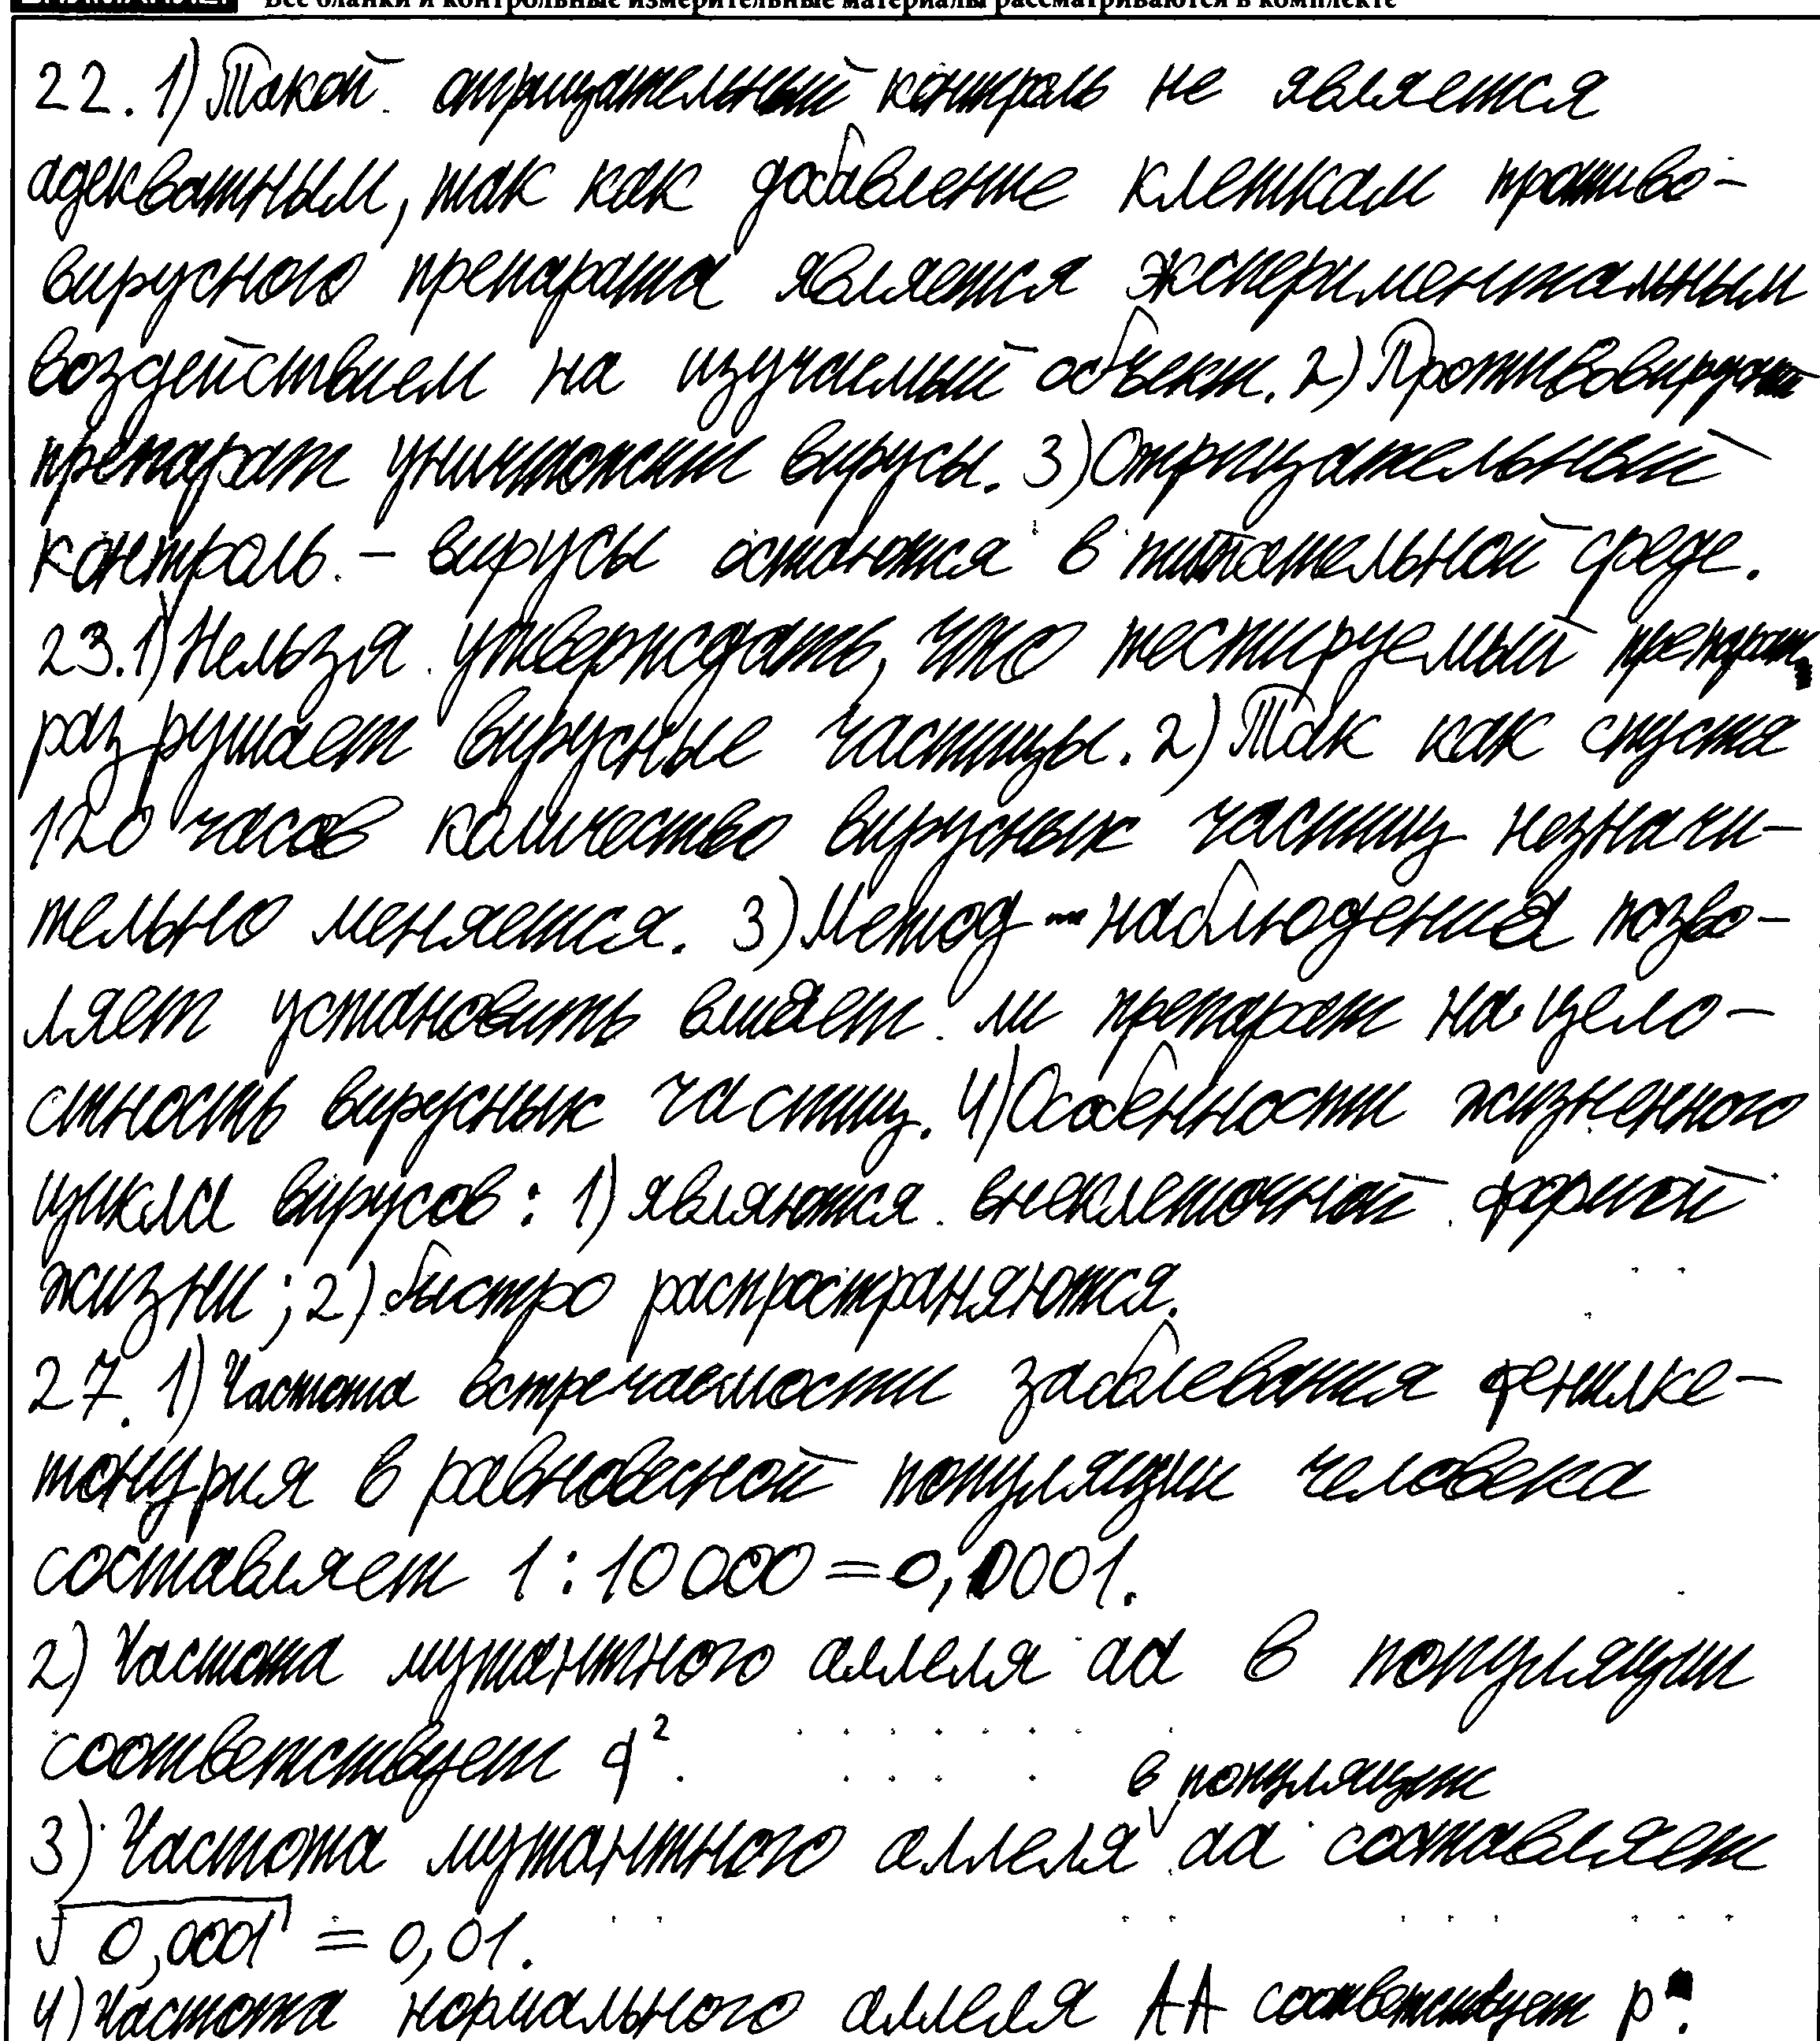 Все бланки и контрольные измерительные материалы рассматриваются в комплекте
22. 1) Такой отрицательный контроль не является
адекватным, так как добавление клеткам противо-
вирусного препарата является экспериментальным
воздействием на изучаемый объект. 2) Противовирусный
препарат уничтожит вирусы. 3) Отрицательный
контроль - вирусы остаются в питательной среде.
23. 1) Нельзя утверждать, что тестируемый препарат
разрушает вирусные частицы. 2) Так как спустя
120 часов количество вирусных частиц незначи-
тельно меняется. 3) Метод наблюдения позво-
ляет установить влияет ли препарат на цело-
стность вирусных частиц. 4) Особенности жизненного
цикла вирусов: 1) являются внеклеточной формой
жизни; 2) быстро распространяются.
27. 1) Частота встречаемости заболевания фенилке-
тонурия в равновесной популяции человека
составляет 1 : 10 000 = 0,0001.
2) Частота мутантного аллеля аа в популяции
соответствует q².
в популяции
3) Частота мутантного аллеля аа составляет
√0,0001 = 0,01.
4) Частота нормального аллеля АА соответствует p